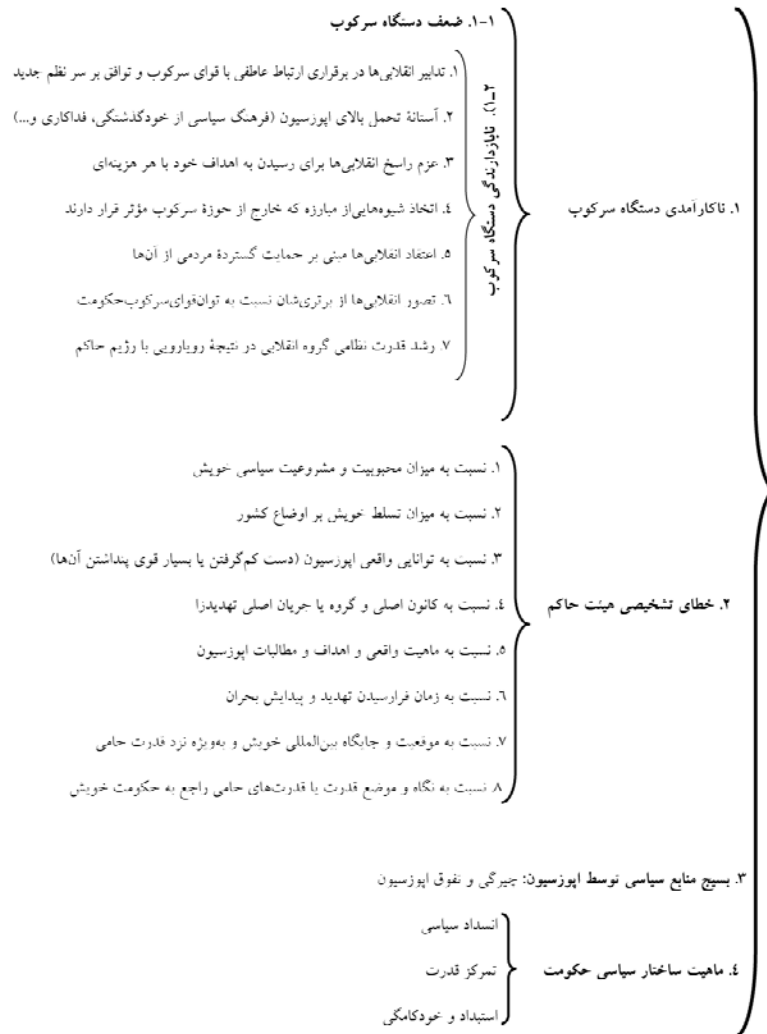 ۱. ناکارآمدی دستگاه سرکوب
۱-۱. ضعف دستگاه سرکوب
۲-۱). نابازدارندگی دستگاه سرکوب
۱. تدابیر انقلابی‌ها در برقراری ارتباط عاطفی با قوای سرکوب و توافق بر سر نظم جدید
۲. آستانهٔ تحمل بالای اپوزسیون (فرهنگ سیاسی از خودگذشتگی، فداکاری و...)
۳. عزم راسخ انقلابی‌ها برای رسیدن به اهداف خود با هر هزینه‌ای
٤. اتخاذ شیوه‌هایی‌از مبارزه که خارج از حوزهٔ سرکوب مؤثر قرار دارند
۵. اعتقاد انقلابی‌ها مبنی بر حمایت گستردهٔ مردمی از آن‌ها
٦. تصور انقلابی‌ها از برتری‌شان نسبت به توان‌قوای‌سرکوب‌حکومت
۷. رشد قدرت نظامی گروه انقلابی در نتیجهٔ رویارویی با رژیم حاکم
۲. خطای تشخیصی هیئت حاکم
۱. نسبت به میزان محبوبیت و مشروعیت سیاسی خویش
۲. نسبت به میزان تسلط خویش بر اوضاع کشور
۳. نسبت به توانایی واقعی اپوزسیون (دست کم‌گرفتن یا بسیار قوی پنداشتن آن‌ها)
٤. نسبت به کانون اصلی و گروه یا جریان اصلی تهدیدزا
۵. نسبت به ماهیت واقعی و اهداف و مطالبات اپوزسیون
٦. نسبت به زمان فرارسیدن تهدید و پیدایش بحران
۷. نسبت به موقعیت و جایگاه بین‌المللی خویش و به‌ویژه نزد قدرت حامی
۸. نسبت به نگاه و موضع قدرت یا قدرت‌های حامی راجع به حکومت خویش
۳. بسیج منابع سیاسی توسط اپوزسیون: چیرگی و تفوق اپوزسیون
٤. ماهیت ساختار سیاسی حکومت
انسداد سیاسی
تمرکز قدرت
استبداد و خودکامگی